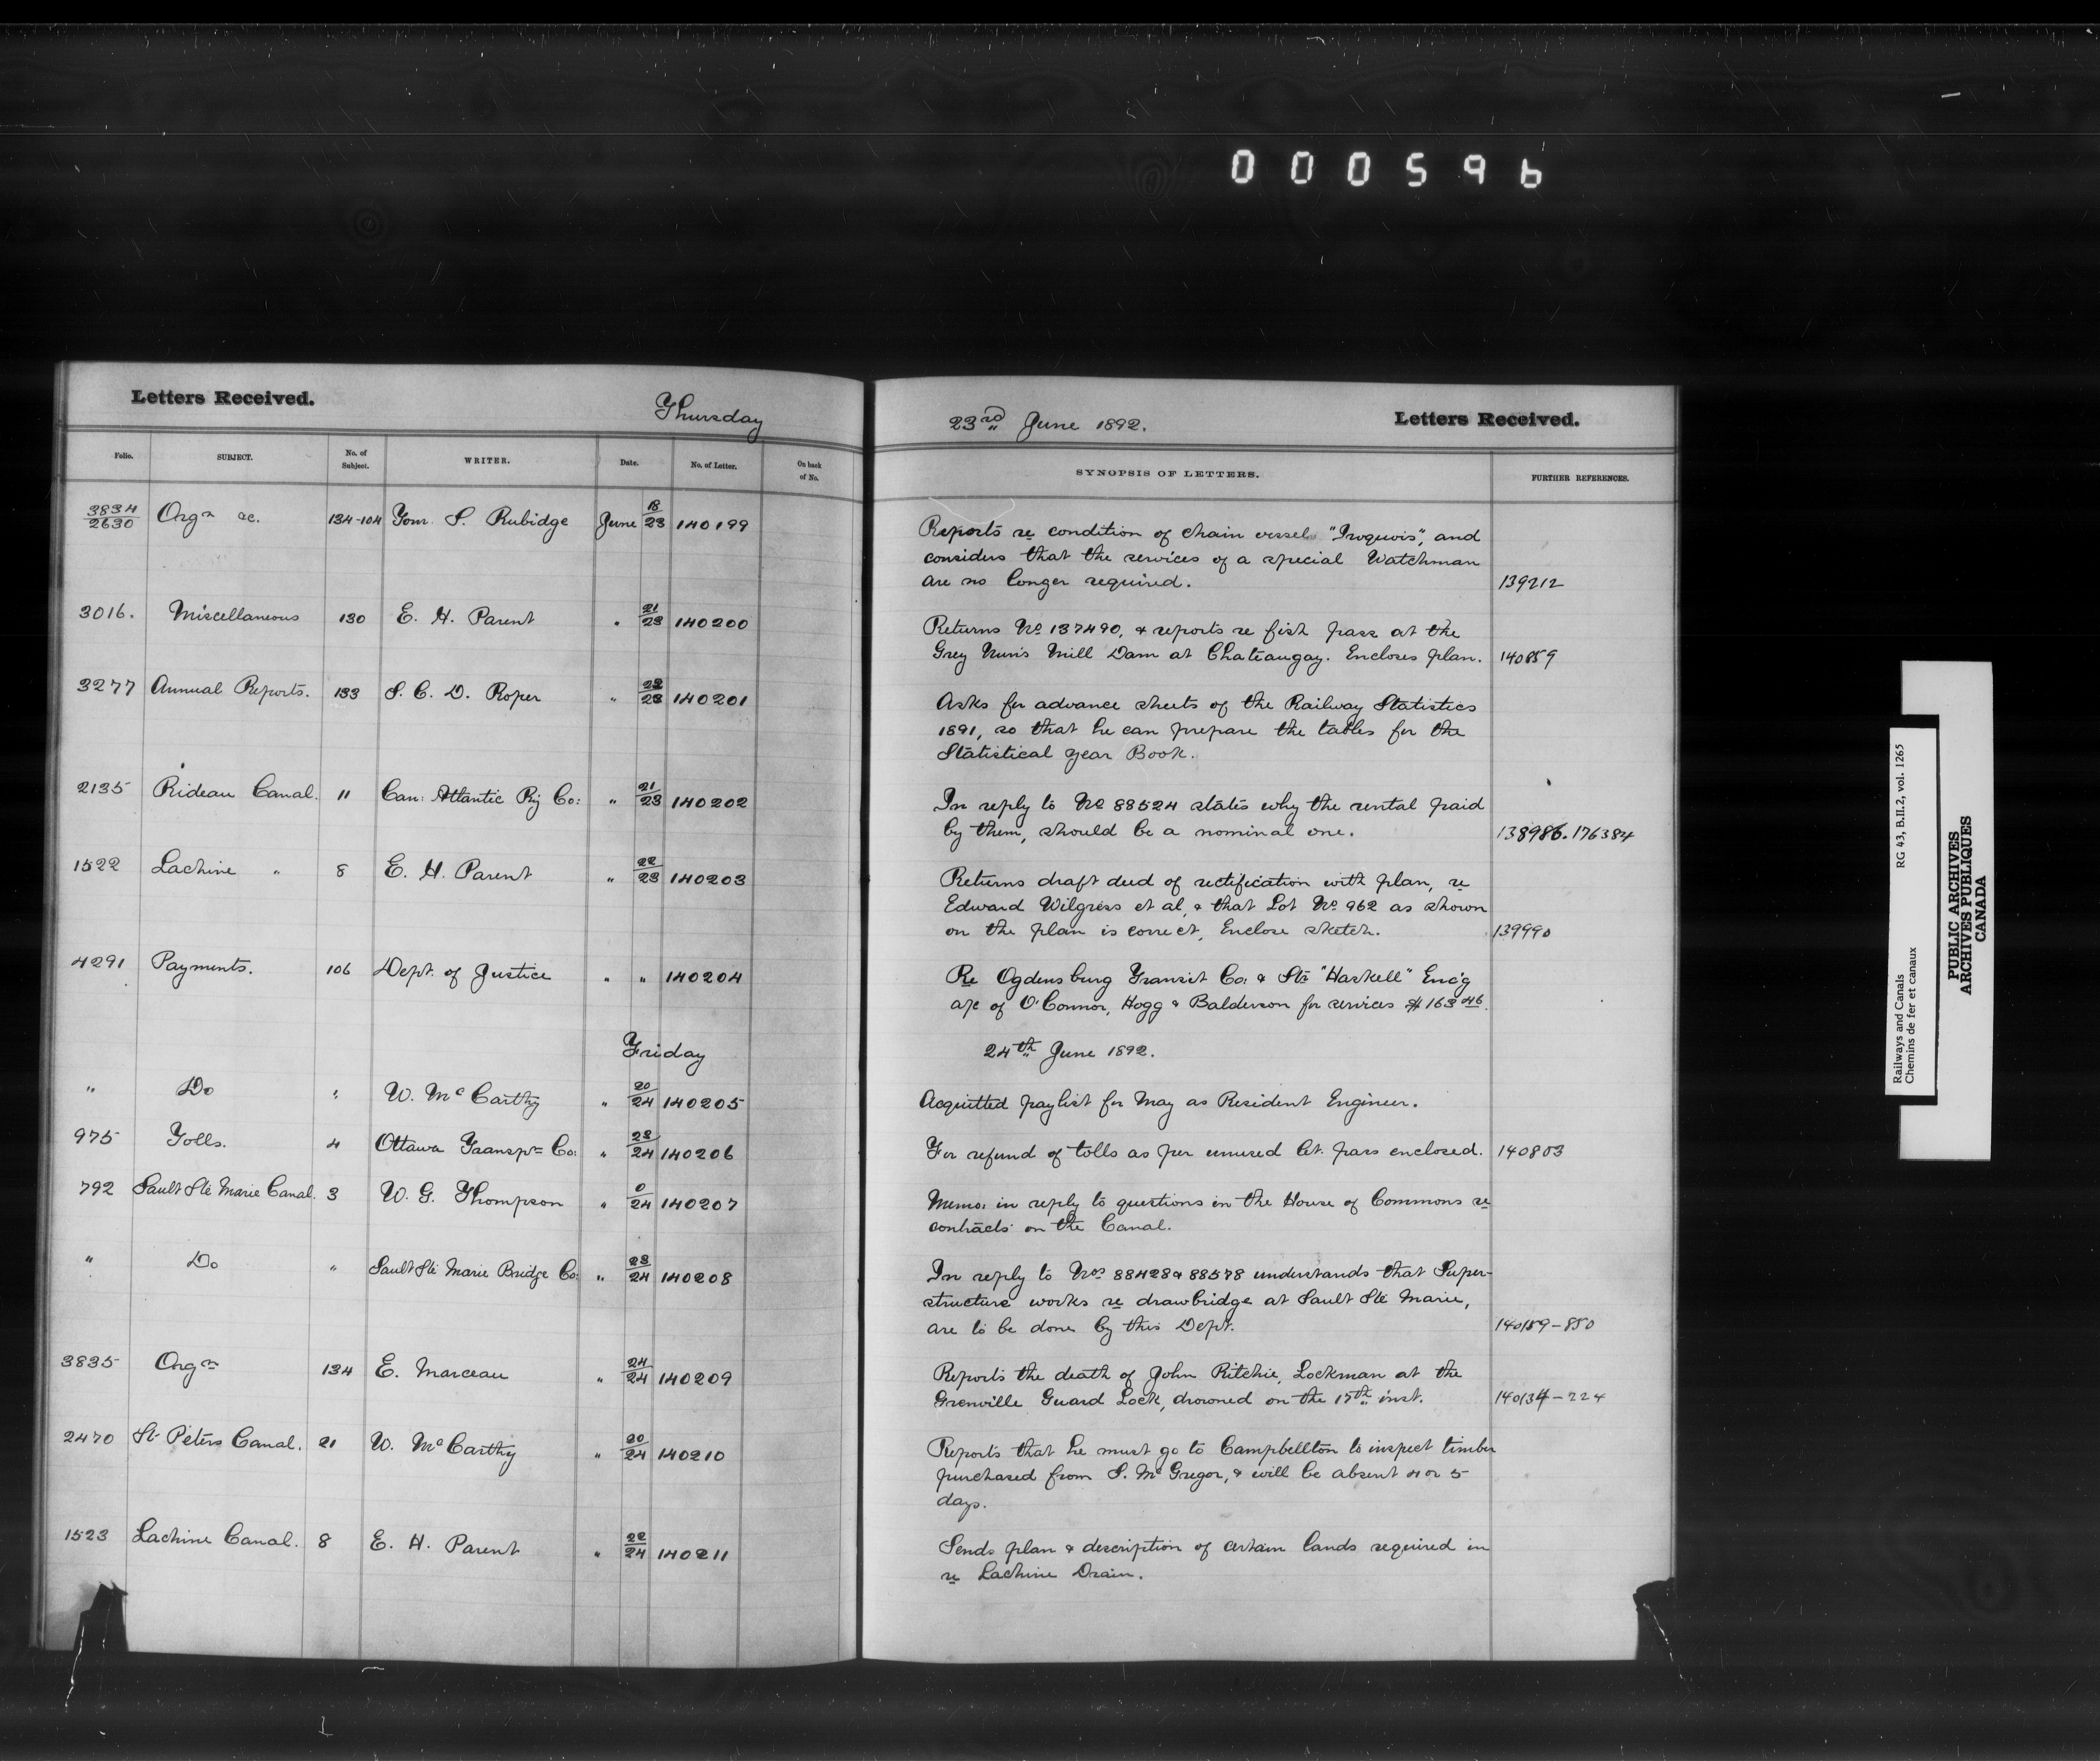 000596
Letters Received.
Thursday
23rd June 1892.
Letters Received.
Folio. SUBJECT. No. of Subject. WRITER. Date. No. of Letter. On back of No. SYNOPSIS OF LETTERS. FURTHER REFERENCES.
3834/2630 Orgn &c. 134-104 Tom. S. Rubidge June 18/23 140199
Reports re condition of chain vessel "Iroquois", and
considers that the services of a special Watchman
are no longer required. 139212
3016. Miscellaneous 130 E. H. Parent " 21/23 140200
Returns No 137490, & reports re fish pass at the
Grey Nun's Mill Dam at Chateaugay. Encloses plan. 140859
3277 Annual Reports. 133 S. C. D. Roper " 22/23 140201
Asks for advance sheets of the Railway Statistics
1891, so that he can prepare the tables for the
Statistical year Book.
2135 Rideau Canal. 11 Can: Atlantic Ry Co: " 21/23 140202
In reply to No 88524 states why the rental paid
by them, should be a nominal one. 138986. 176384
1522 Lachine " 8 E. H. Parent " 22/23 140203
Returns draft deed of rectification with plan, re
Edward Wilgress et al, & that Lot No 962 as shown
on the plan is correct, Enclose sketch. 139990
4291 Payments. 106 Dept. of Justice " " 140204
Re Ogdensburg Transit Co: & Str "Haskell" Enc'g
a/c of O'Connor, Hogg & Balderson for services $163 46.
Friday
24th June 1892.
" Do " W. McCarthy " 20/24 140205
Acquitted paylist for May as Resident Engineer.
975 Tolls. 4 Ottawa Transpn Co: " 23/24 140206
For refund of tolls as per unused Let. pass enclosed. 140803
792 Sault Ste Marie Canal. 3 W. G. Thompson " 0/24 140207
Memo: in reply to questions in the House of Commons re
contracts on the Canal.
" Do " Sault Ste Marie Bridge Co: " 23/24 140208
In reply to Nos 88428 & 88578 understands that Super-
structure works re drawbridge at Sault Ste Marie,
are to be done by this Dept. 140159-850
3835 Orgn 134 E. Marceau " 24/24 140209
Reports the death of John Ritchie, Lockman at the
Grenville Guard Lock, drowned on the 17th inst. 140134-224
2470 St Peters Canal. 21 W. McCarthy " 20/24 140210
Reports that he must go to Campbellton to inspect timber
purchased from S. McGregor, & will be absent 4 or 5
days.
1523 Lachine Canal. 8 E. H. Parent " 22/24 140211
Sends plan & description of certain lands required in
re Lachine Drain.
Railways and Canals RG 43, B.II.2, vol. 1265
Chemins de fer et canaux
PUBLIC ARCHIVES
ARCHIVES PUBLIQUES
CANADA